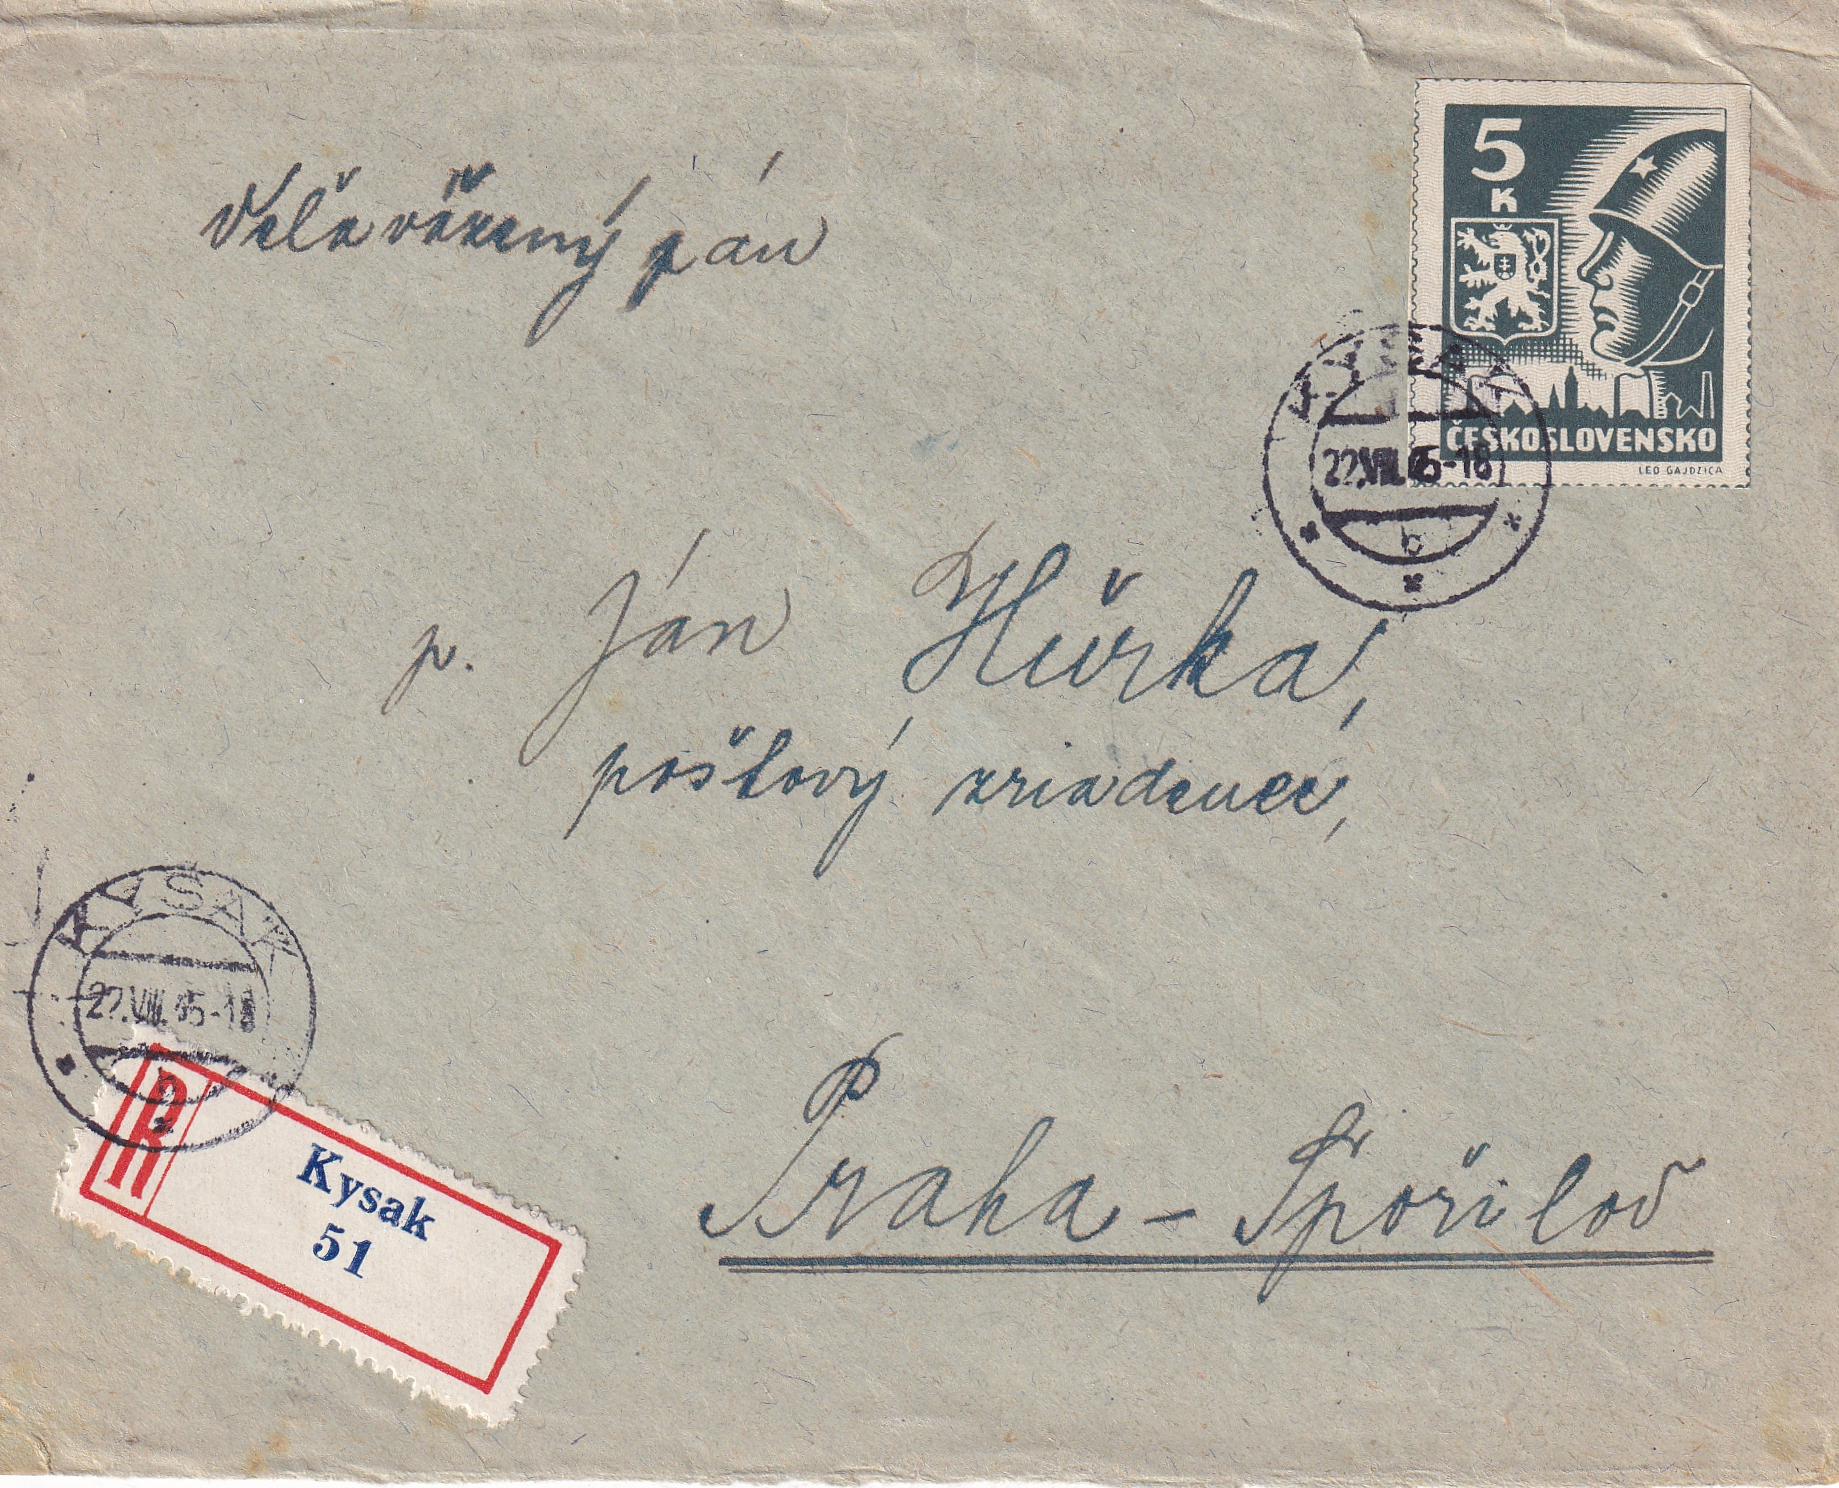 Veľavážený pán
5
K
ČESKOSLOVENSKO
LEO GAJDZICA
KYSAK
22.VIII.45-18
b
p. Ján Hůrka,
poštový zriadenec,
KYSAK
22.VIII.45-18
R
Kysak
51
Praha - Spořilov